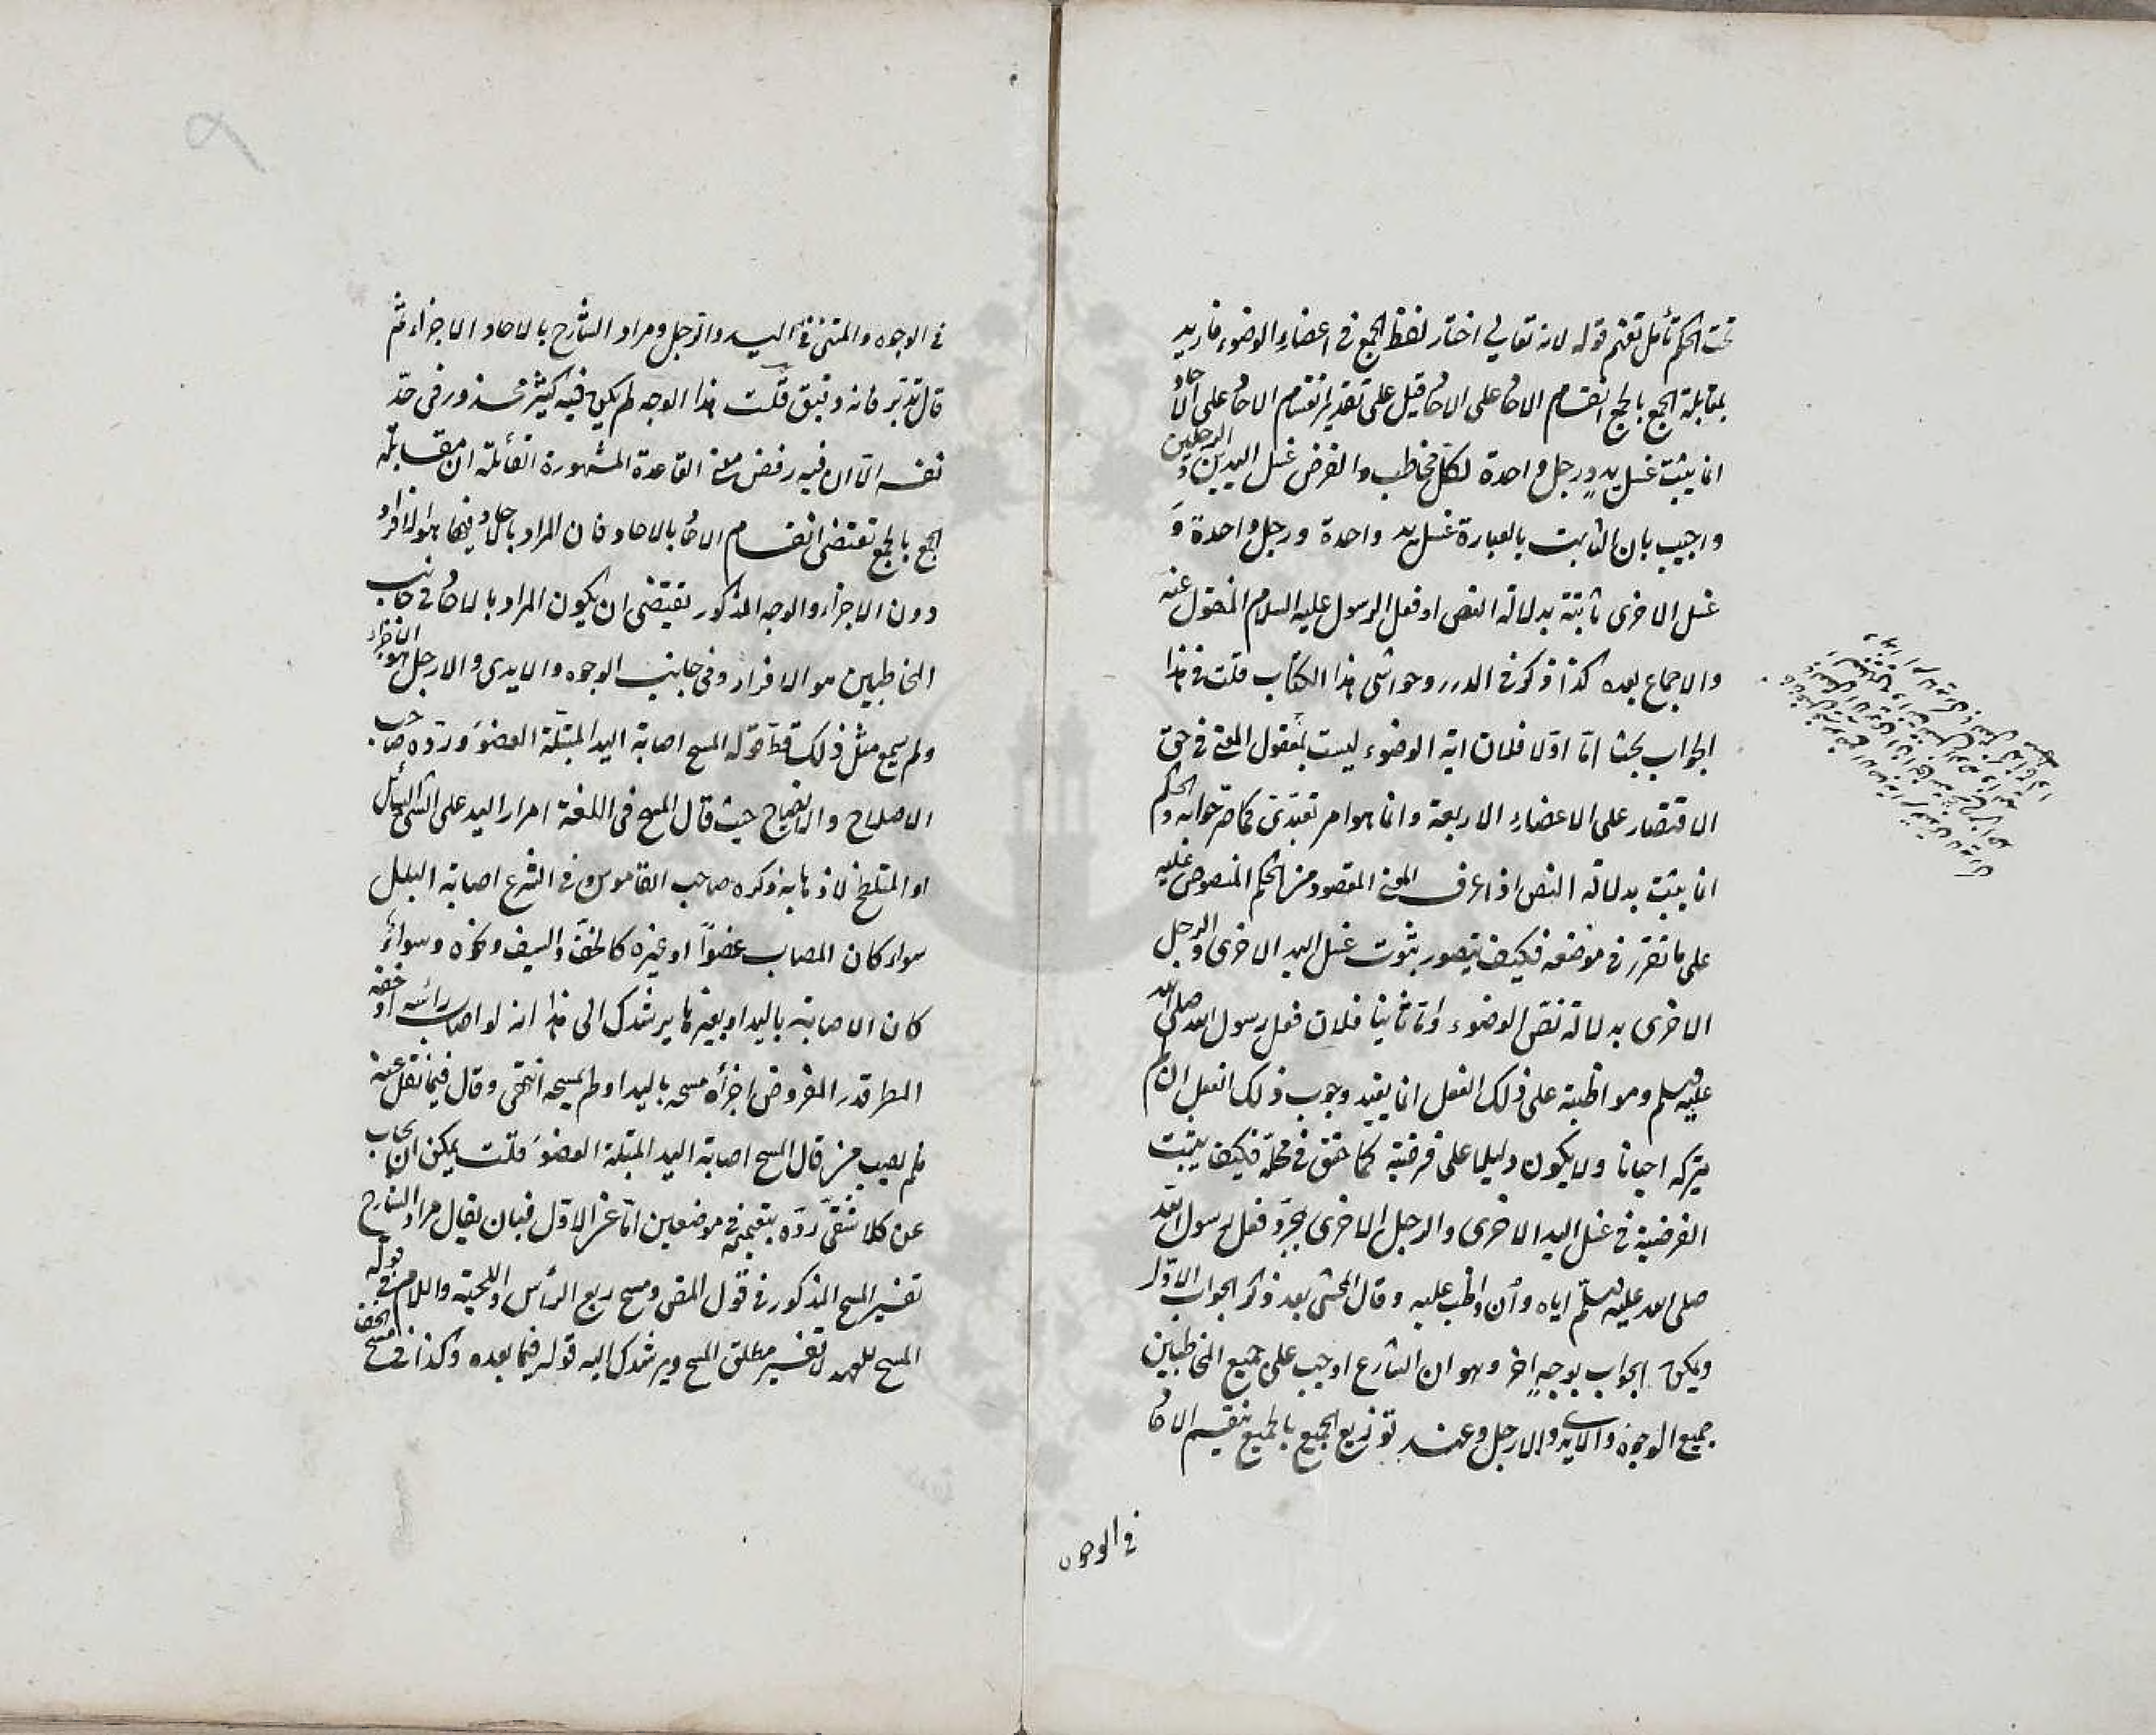 تحت الحكم تأمل تفهم قوله لانه تعالى اختار لفظ الجمع فى اعضاء الوضوء فاريد
بمقابلة الجمع بالجمع انقسام الاحاد على الاحاد قيل على تقدير انقسام الاحاد على الاحاد
انما يثبت غسل يد ورجل واحدة لكل مخاطب والفرض غسل اليدين والرجلين
واجيب بان الثابت بالعبارة غسل يد واحدة ورجل واحدة و
غسل الاخرى ثابتة بدلالة النص او فعل الرسول عليه السلام المنقول عنه
والاجماع بعده كذا ذكر فى الدرر وحواشى هذا الكتاب قلت فى هذا
الجواب بحث اما اولا فلان اية الوضوء ليست بمعقول المعنى فى حق
الاقتصار على الاعضاء الاربعة وانما هو امر تعبدى كما صرحوا به والحكم
انما يثبت بدلالة النص اذا عرف المعنى المقصود من الحكم المنصوص عليه
على ما تقرر فى موضعه فكيف يتصور ثبوت غسل اليد الاخرى والرجل
الاخرى بدلالة نص الوضوء واما ثانيا فلان فعل رسول الله صلى الله
عليه وسلم ومواظبته على ذلك الفعل انما يفيد وجوب ذلك الفعل ان لم
يتركه احيانا ولا يكون دليلا على فرضيته كما حقق فى محله فكيف يثبت
الفرضية فى غسل اليد الاخرى والرجل الاخرى بمجرد فعل رسول الله
صلى الله عليه وسلم اياه وان واظب عليه وقال المحشى بعد ذكر الجواب الاول
ويمكن الجواب بوجه اخر وهو ان الشارع اوجب على جميع المخاطبين
جميع الوجوه والايدى والارجل وعند توزيع الجميع بالجميع ينقسم الاحاد
فى الوجوه
فى الوجوه والمثنى فى اليد والرجل ومراد الشارح بالاحاد الاجزاء ثم
قال تدبر فانه دقيق قلت هذا الوجه لم يكن فيه كثير محذور فى حد
نفسه الا ان فيه رفض معنى القاعدة المشهورة القائلة ان مقابلة
الجمع بالجمع تقتضى انقسام الاحاد بالاحاد فان المراد باحاد فيها هو الافراد
دون الاجزاء والوجه المذكور يقتضى ان يكون المراد بالاحاد فى جانب
المخاطبين هو الافراد وفى جانب الوجوه والايدى والارجل هو الاجزاء
ولم يسمع مثل ذلك قط قوله المسح اصابة اليد المبتلة العضو ورده صاحب
الاصلاح والايضاح حيث قال المسح فى اللغة امرار اليد على الشئ السائل
او المتلطخ لاذهابه ذكره صاحب القاموس وفى الشرع اصابة البلل
سواء كان المصاب عضوا او غيره كالخف والسيف ونحوه وسواء
كان الاصابة باليد او بغيرها يرشدك الى هذا انه لو اصاب رأسه او خفه
المطر قدر المفروض اجزأه مسحه باليد او لم يمسحه انتهى وقال فيما نقل عنه
فلم يصب من قال المسح اصابة اليد المبتلة العضو قلت يمكن ان يجاب
عن كلا شقى رده بتعميمه فى موضعين اما عن الاول فبان يقال مراد الشارح
تفسير المسح المذكور فى قول المص ومسح ربع الرأس واللحية واللام فى قوله
المسح للعهد لا تفسير مطلق المسح ويرشدك اليه قوله فيما بعده وكذا فى مسح الخف